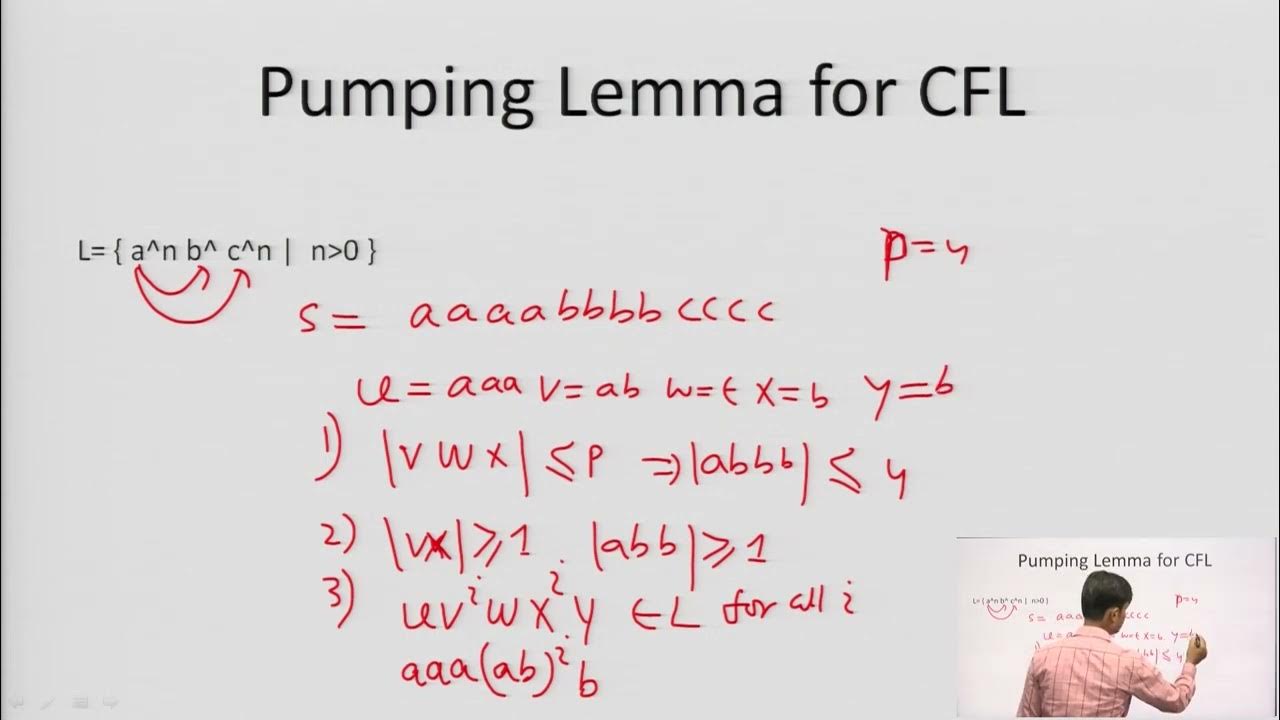 Pumping Lemma for CFL
L= { a^n b^ c^n | n>0 }
P=4
S = aaaabbbbcccc
u = aaa v = ab w=ϵ x = b y = b
1) |v w x| ≤ P ⇒ |abbb| ≤ 4
2) |vx| ≥ 1 . |abb| ≥ 1
3) uv^i w x^i y ∈ L for all i
aaa(ab)^i b
Pumping Lemma for CFL
L= { a^n b^ c^n | n>0 }
P=4
S =
cccc
w=ϵ x=b y=b
≤ 4